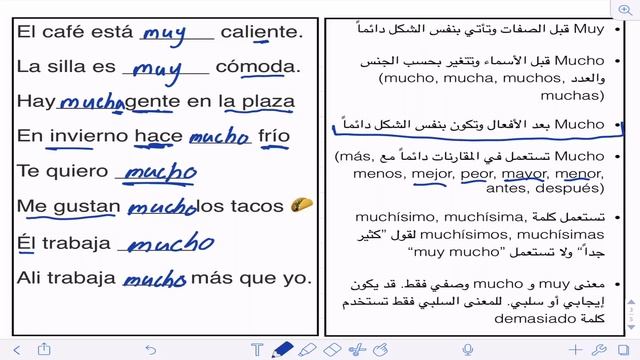 El café está muy caliente.
La silla es muy cómoda.
Hay mucha gente en la plaza
En invierno hace mucho frío
Te quiero mucho
Me gustan mucho los tacos 🌮
Él trabaja mucho
Ali trabaja mucho más que yo.
• Muy قبل الصفات وتأتي بنفس الشكل دائماً
• Mucho قبل الأسماء وتتغير بحسب الجنس
والعدد (mucho, mucha, muchos,
muchas)
• Mucho بعد الأفعال وتكون بنفس الشكل دائماً
• Mucho تستعمل في المقارنات دائماً مع (más,
menos, mejor, peor, mayor, menor,
antes, después)
• تستعمل كلمة muchísimo, muchísima,
muchísimos, muchísimas لقول ”كثير
جداً“ ولا تستعمل ”muy mucho“
• معنى muy و mucho وصفي فقط. قد يكون
إيجابي أو سلبي. للمعنى السلبي فقط تستخدم
كلمة demasiado